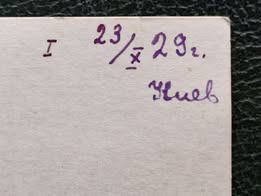 I 23/X 29г.
Киев